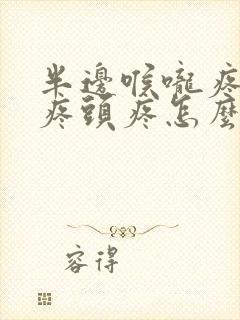 半邊喉嚨疼
疼頭疼怎麼
容得